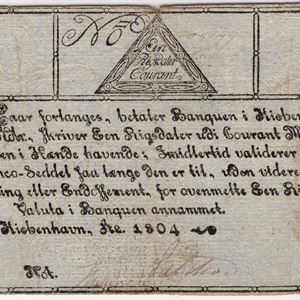 No
Een
Rigsdaler
Courant.
Naar forlanges, betaler Banquen i Kiøben
skriver Een Rigsdaler udi Courant
en i Hænde havende; Imidlertid validerer
nco-Seddel saa længe den er til, uden videre
ing eller Endossement, for ovenmelte Een Ri
Valuta i Banquen annammet.
Kiøbenhavn, Ao. 1804
Not.